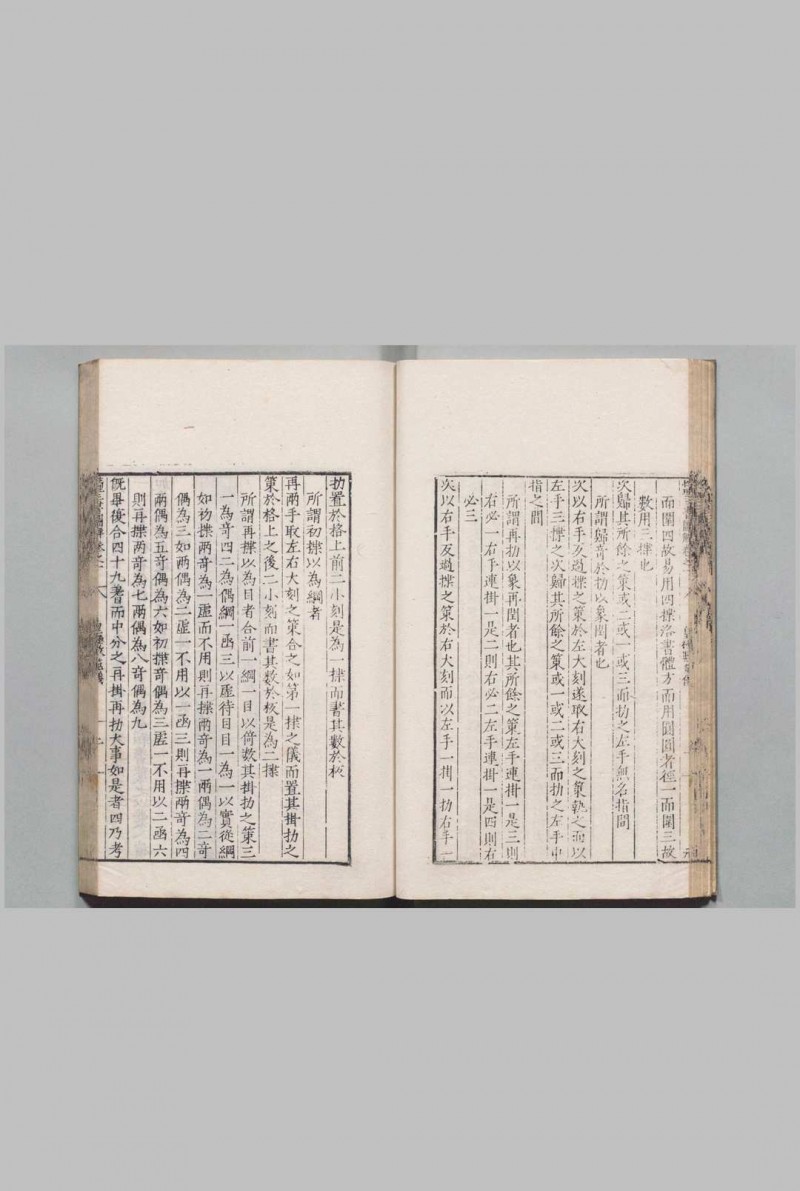 而圍四故易用四揲洛書體方而用圓圓者徑一而圍三故
數用三揲也
次歸其所餘之策或二或一或三而扐之左手無名指間
所謂歸奇於扐以象閏者也
次以右手反過揲之策於左大刻遂取右大刻之策執之而以
左手三揲之次歸其所餘之策或一或二或三而扐之左手中
指之間
所謂再扐以象再閏者也其所餘之策左手連掛一是三則
右必一右手連掛一是二則右必二左手連掛一是四則右
必三
次以右手反過揲之策於右大刻而以左手一掛一扐右手一
扐置於格上前二小刻是為一揲而書其數於板
所謂初揲以為綱者
再兩手取左右大刻之策合之如第一揲之儀而置其掛扐之
策於格上之後二小刻而書其數於板是為二揲
所謂再揲以為目者合前一綱一目以倚數其掛扐之策三
一為奇四二為偶綱一函三以虛待目目一為一以實從綱
如初揲兩奇為一虛而不用則再揲兩奇為一兩偶為二奇
偶為三如兩偶為二虛一不用以一函三則再揲兩奇為四
兩偶為五奇偶為六如初揲奇偶為三虛一不用以二函六
則再揲兩奇為七兩偶為八奇偶為九
既畢復合四十九蓍而中分之再掛再扐大事如是者四乃考